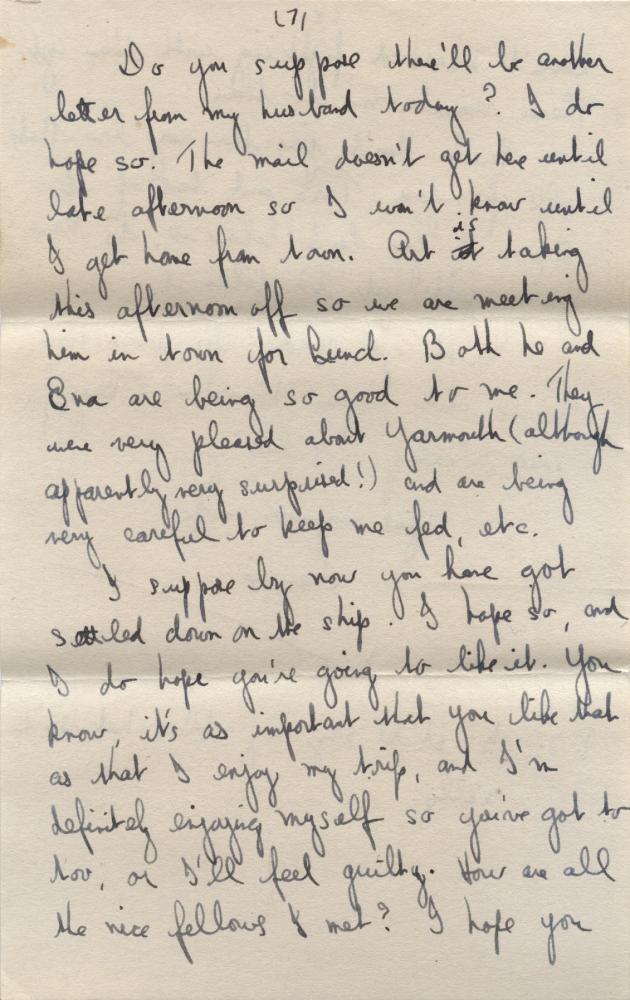 (7)
Do you suppose there'll be another
letter from my husband today? I do
hope so. The mail doesn't get here until
late afternoon so I won't know until
I get home from town. Art is taking
this afternoon off so we are meeting
him in town for lunch. Both he and
Ena are being so good to me. They
were very pleased about Yarmouth (although
apparently very surprised!) and are being
very careful to keep me fed, etc.
I suppose by now you have got
settled down on the ship. I hope so, and
I do hope you're going to like it. You
know, it's as important that you like that
as that I enjoy my trip, and I'm
definitely enjoying myself so you've got to
too, or I'll feel guilty. How are all
the nice fellows I met? I hope you